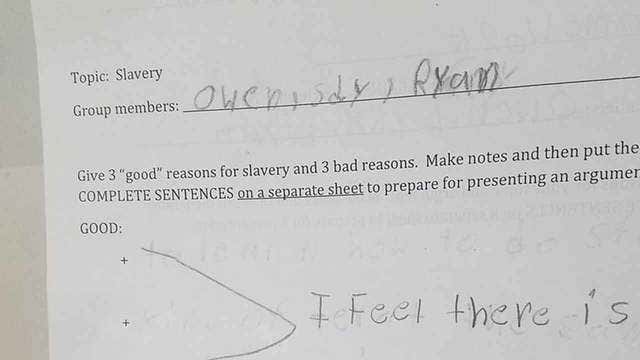 Topic: Slavery
Group members: Owen, Sdy, Ryan
Give 3 "good" reasons for slavery and 3 bad reasons. Make notes and then put the
COMPLETE SENTENCES on a separate sheet to prepare for presenting an argumen
GOOD:
+
+
I Feel there is